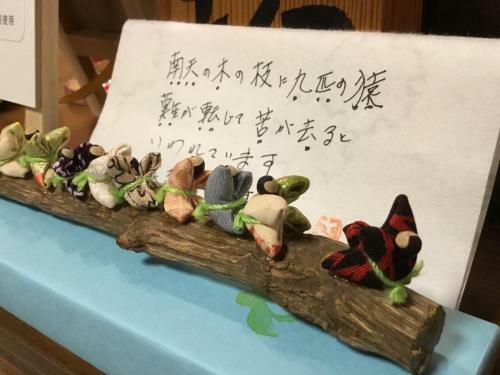 南天の木の枝に九匹の猿
難が転じて苦が去ると
いわれています
使用